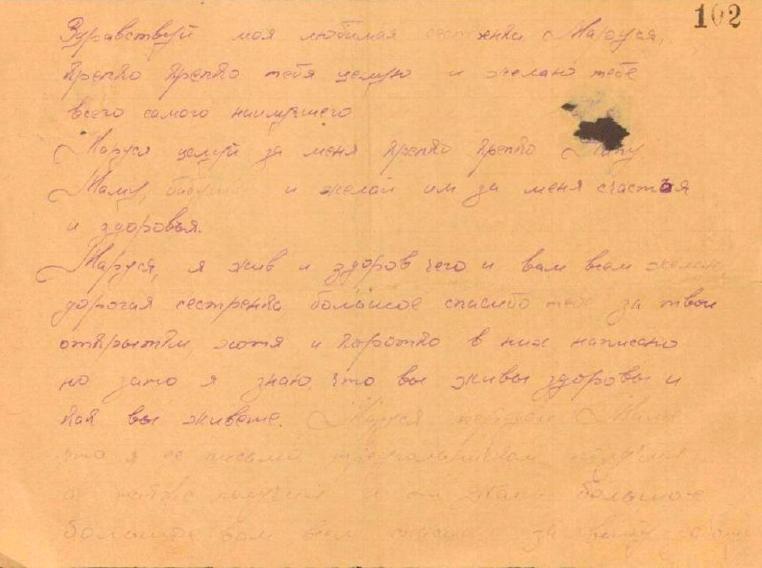 102
Здравствуй моя любимая сестренка Маруся,
крепко крепко тебя целую и желаю тебе
всего самого наилучшего
Маруся целуй за меня крепко крепко
Маму, и желай им за меня счастья
и здоровья.
Маруся, я жив и здоров чего и вам всем желаю,
дорогая сестренка большое спасибо тебе за твои
открытки, хотя и коротко в них написано
но зато я знаю, что вы живы здоровы и
как вы живете. Маруся Маме
что я ее письмо получил
а также получил и от большое
большое вам всем спасибо за